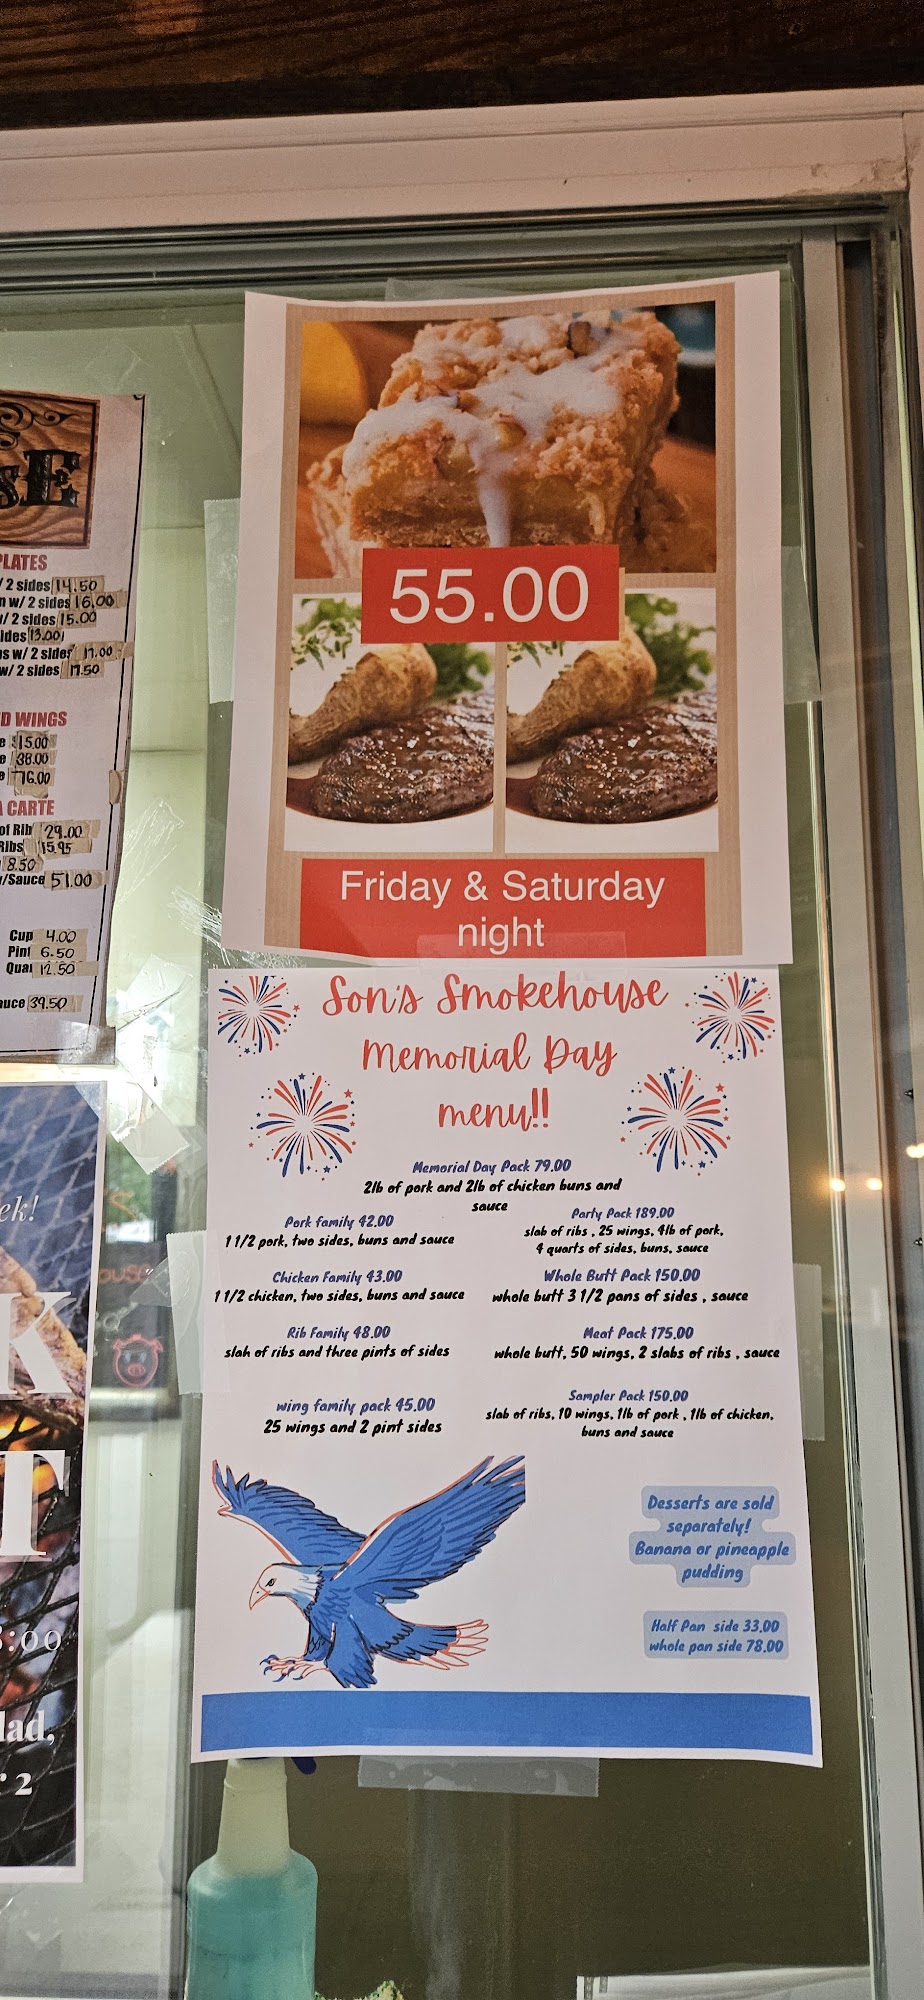 55.00
Friday & Saturday
night
PLATES
/ 2 sides 14.50
n w/ 2 sides 16.00
/ 2 sides 15.00
ides 13.00
s w/ 2 sides 17.00
w/ 2 sides 17.50
D WINGS
e $15.00
e 38.00
e 76.00
CARTE
of Rib 29.00
Ribs 15.95
8.50
/Sauce 51.00
Cup 4.00
Pint 6.50
Quar 12.50
auce 39.50
Son's Smokehouse
Memorial Day
menu!!
Memorial Day Pack 79.00
2lb of pork and 2lb of chicken buns and
sauce
Pork family 42.00
1 1/2 pork, two sides, buns and sauce
Chicken Family 43.00
1 1/2 chicken, two sides, buns and sauce
Rib Family 48.00
slah of ribs and three pints of sides
wing family pack 45.00
25 wings and 2 pint sides
Party Pack 189.00
slab of ribs , 25 wings, 4lb of pork,
4 quarts of sides, buns, sauce
Whole Butt Pack 150.00
whole butt 3 1/2 pans of sides , sauce
Meat Pack 175.00
whole butt, 50 wings, 2 slabs of ribs , sauce
Sampler Pack 150.00
slab of ribs, 10 wings, 1lb of pork , 1lb of chicken,
buns and sauce
Desserts are sold
separately!
Banana or pineapple
pudding
Half Pan side 33.00
whole pan side 78.00
ek!
K
T
:00
lad,
r 2